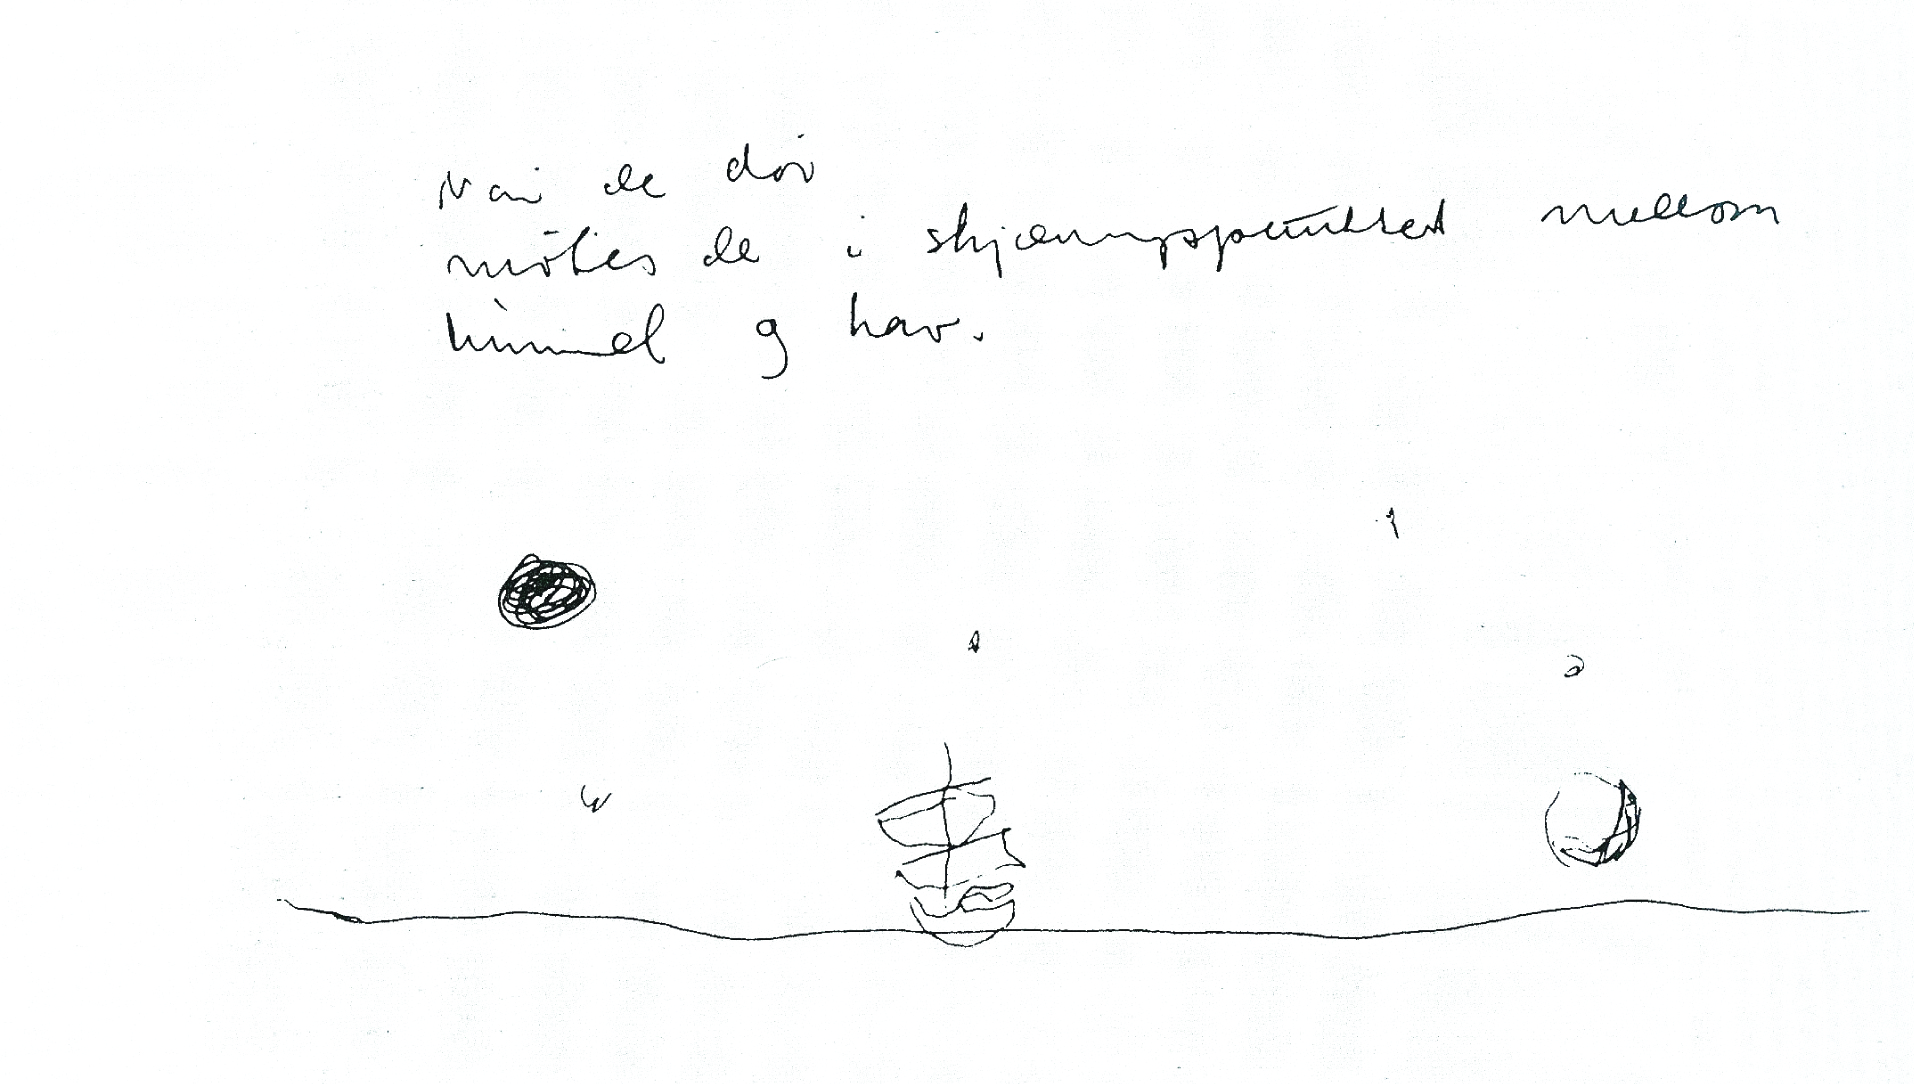 Når de dör
mötes de i skjæringspunktet mellom
himmel og hav.